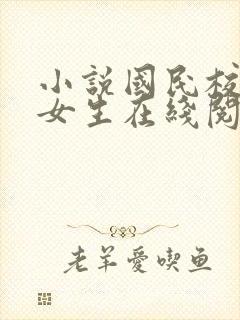 小說國民校
女生在綫閱
老羊愛喫鱼